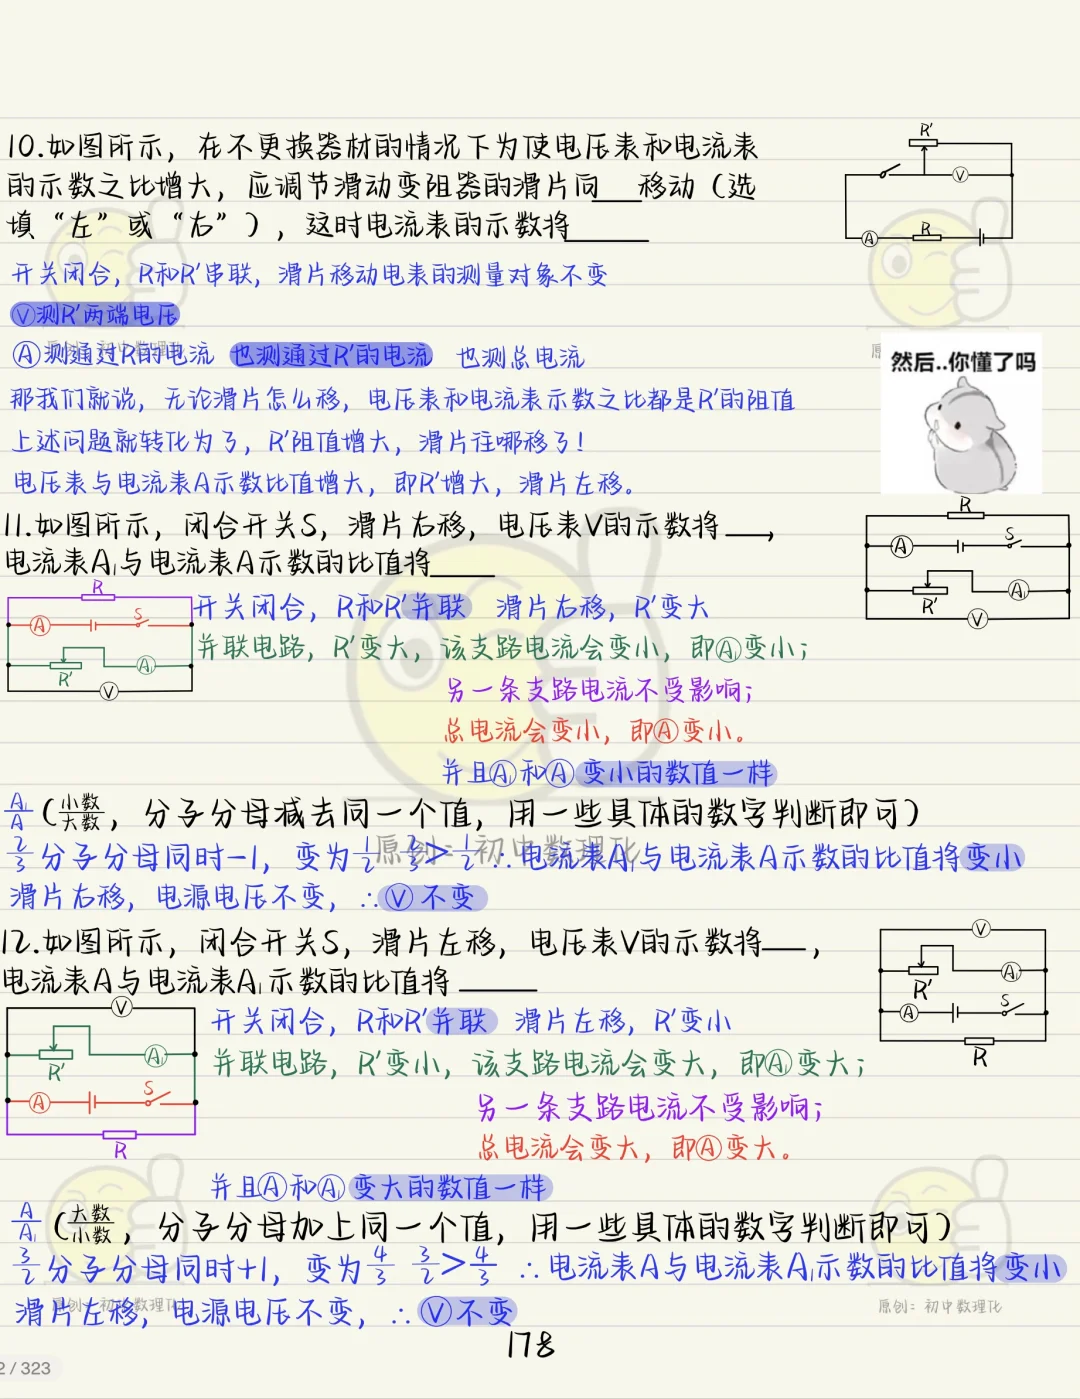 10.如图所示，在不更换器材的情况下为使电压表和电流表
的示数之比增大，应调节滑动变阻器的滑片向___移动（选
填“左”或“右”），这时电流表的示数将______
R'
V
A
R
开关闭合，R和R'串联，滑片移动电表的测量对象不变
Ⓥ测R'两端电压
Ⓐ测通过R的电流 也测通过R'的电流 也测总电流
原创：初中数理化
那我们就说，无论滑片怎么移，电压表和电流表示数之比都是R'的阻值
上述问题就转化为了，R'阻值增大，滑片往哪移了！
电压表与电流表A示数比值增大，即R'增大，滑片左移。
然后..你懂了吗
11.如图所示，闭合开关S，滑片右移，电压表V的示数将___，
电流表A₁与电流表A示数的比值将_____
R
A
S
R'
A₁
V
R
A
S
R'
A₁
V
开关闭合，R和R'并联 滑片右移，R'变大
并联电路，R'变大，该支路电流会变小，即A₁变小；
另一条支路电流不受影响；
总电流会变小，即Ⓐ变小。
并且A₁和Ⓐ变小的数值一样
A₁/A（小数/大数，分子分母减去同一个值，用一些具体的数字判断即可）
2/3分子分母同时-1，变为1/2 2/3>1/2 ∴电流表A₁与电流表A示数的比值将变小
原创：初中数理化
滑片右移，电源电压不变，∴Ⓥ不变
12.如图所示，闭合开关S，滑片左移，电压表V的示数将___，
电流表A与电流表A₁示数的比值将______
V
R'
A₁
A
S
R
V
R'
A₁
A
S
R
开关闭合，R和R'并联 滑片左移，R'变小
并联电路，R'变小，该支路电流会变大，即A₁变大；
另一条支路电流不受影响；
总电流会变大，即Ⓐ变大。
并且Ⓐ和A₁变大的数值一样
A/A₁（大数/小数，分子分母加上同一个值，用一些具体的数字判断即可）
3/2分子分母同时+1，变为4/3 3/2>4/3 ∴电流表A与电流表A₁示数的比值将变小
滑片左移，电源电压不变，∴Ⓥ不变
原创：初中数理化
原创：初中数理化
178
2/323